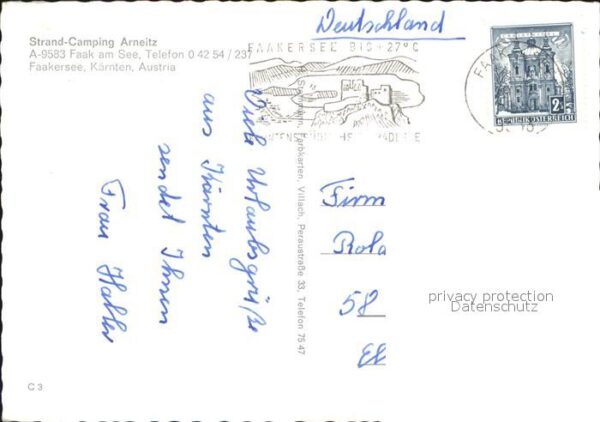 Strand-Camping Arneitz
A-9583 Faak am See, Telefon 0 42 54 / 237
Faakersee, Kärnten, Austria
Deutschland
FAAKERSEE BIS +27°C
2
REPUBLIK ÖSTERREICH
Viele Urlaubsgrüße
aus Kärnten
sendet Ihnen
Frau
Farbkarten, Villach, Peraustraße 33, Telefon 75 47
Firm
Rola
58
El
privacy protection
Datenschutz
C 3